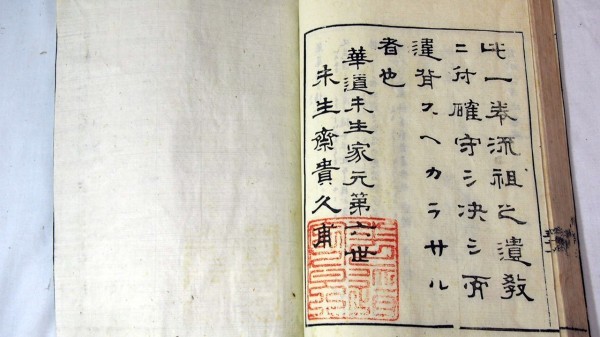 此一巻流祖之遺教
ニ付確守シ決シ而
違背スヘカラサル
者也
華道未生家元第六世
未生齋貴久甫